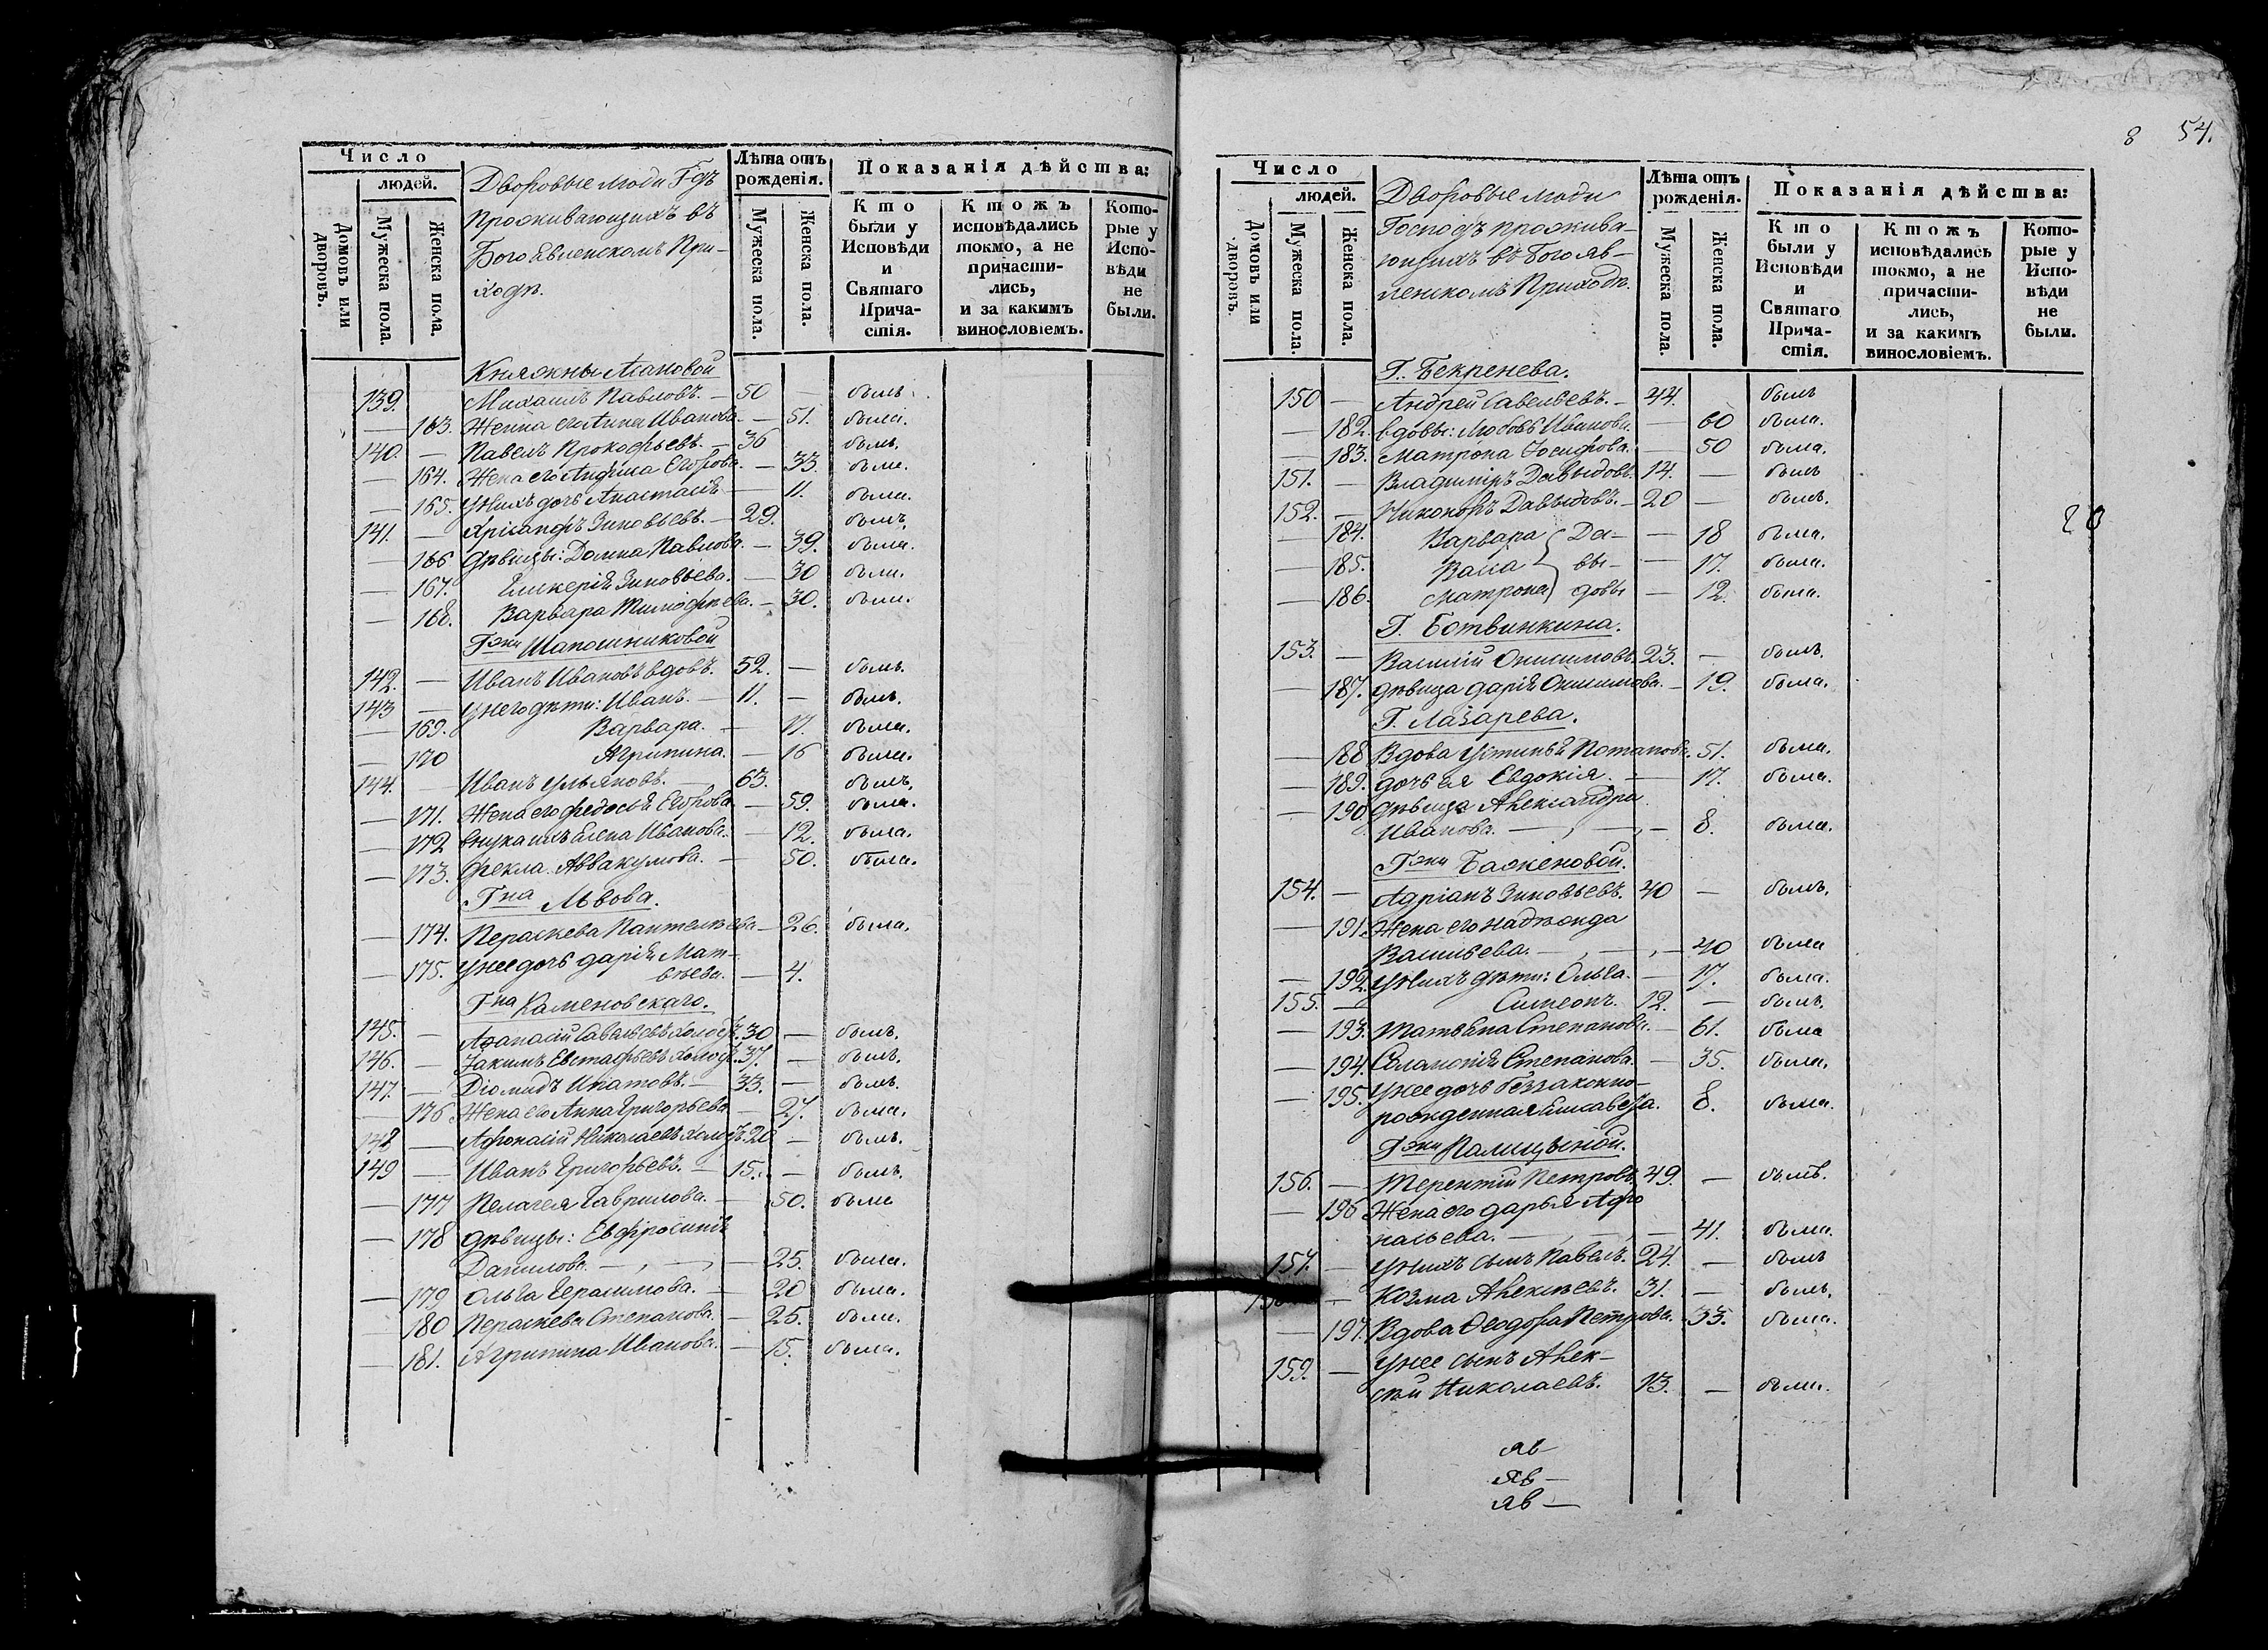 Число
людей.
Домовъ или дворовъ.
Мужеска пола.
Женска пола.
Дворовые люди Г-дъ
Проживающихъ въ
Богоявленскомъ При-
ходѣ.
Лѣта отъ рожденія.
Мужеска пола.
Женска пола.
Показанія дѣйства:
Кто были у Исповѣди и Святаго Прича-стія.
Кто жъ исповѣдались токмо, а не причасти-лись, и за какимъ винословіемъ.
Кото-рые у Испо-вѣди не были.
Княжны Асановой
139. — Михаилъ Павловъ. — 50 — былъ.
— 163. Жена его Анна Иванова. — 51. была.
140. — Павелъ Прокофьевъ. — 36 былъ.
— 164. Жена его Анфиса Егорова. — 33. была.
— 165. У нихъ дочь Анастасія — 11. была.
141. — Хрисанфъ Зиновьевъ. — 29. былъ.
— 166 Дѣвицы: Домна Павлова. — 39. была.
— 167. Гликерія Зиновьева. — 30 была.
— 168. Варвара Тимофѣева. — 30. была.
Г-жи Шапошниковой
142. — Иванъ Ивановъ вдовъ. 52. — былъ.
143 — У него дѣти: Иванъ. — 11. — былъ.
— 169. Варвара. — 17. была.
— 170 Агрипина. — 16 была.
144. — Иванъ Ульяновъ. — 63. былъ.
— 171. Жена его Федосья Егорова — 59. была.
— 172 внука ихъ Елена Иванова. — 12. была.
— 173. Фекла Аввакумова. — 50. была.
Г-на Львова.
— 174. Пераскева Пантелѣева — 26. была.
— 175. У нее дочь Дарія Мат-
вѣева. — 4.
Г-на Каменовскаго.
145. — Афанасій Савельевъ холостъ. 30 — былъ.
146. — Іакимъ Евстафьевъ холостъ. 37. — былъ.
147. — Діомидъ Ипатовъ. — 33. — былъ.
— 176 Жена его Анна Григорьева — 27. была.
148 — Афонасій Николаевъ холостъ. 20 — былъ.
149 — Иванъ Григорьевъ. — 15. — былъ.
— 177 Пелагея Гаврилова. — 50. была
— 178 Дѣвицы: Евфросинія
Данилова. — 25. была.
— 179 Ольга Герасимова. — 20 была.
— 180 Пераскева Степанова. — 25. была.
— 181. Агрипина Иванова. — 15. была.
8 54.
Число
людей.
Домовъ или дворовъ.
Мужеска пола.
Женска пола.
Дворовые люди
Господъ прожива-
ющихъ въ Богояв-
ленскомъ Приходѣ.
Лѣта отъ рожденія.
Мужеска пола.
Женска пола.
Показанія дѣйства:
Кто были у Исповѣди и Святаго Прича-стія.
Кто жъ исповѣдались токмо, а не причасти-лись, и за какимъ винословіемъ.
Кото-рые у Испо-вѣди не были.
Г. Бекренева.
150 — Андрей Савельевъ. — 44. былъ
— 182. вдовы: Любовь Иванова. — 60 была.
— 183. Матрона Іосифова. — 50 была.
151. — Владиміръ Давыдовъ. 14. — былъ
152. — Никоноръ Давыдовъ. — 20 — былъ.
— 184. Варвара } Да- — 18 была.
— 185. Васса } вы- — 17. была.
— 186. Матрона } довы — 12. была.
Г. Ботвинкина.
153. — Василій Онисимовъ. 23. — былъ.
— 187. дѣвица Дарія Онисимова. — 19. была.
Г. Лазарева.
— 188 Вдова Устинья Потапова. 51. была.
— 189. дочь ея Евдокія. — 17. была.
— 190 дѣвица Александра
Иванова. — 8. была.
Г-жи Баженовой.
154. — Адріанъ Зиновьевъ. 40 — былъ.
— 191. Жена его Надѣжда
Васильева. — 40 была
— 192. У нихъ дѣти: Ольга. — 17. была.
155. — Симеонъ. 12. — былъ.
— 193. Татьяна Степанова. — 61. была
— 194. Соломонія Степанова. — 35. была.
— 195. У нее дочь беззаконно-
рожденная Елисавета. 8. была.
Г-жи Палицыной.
156. — Терентій Петровъ. 49. — былъ.
— 196 Жена его Дарья Афо
насьева. — 41. была.
157. — У нихъ сынъ Павелъ. 24. — былъ
— Козма Алексѣевъ. 31. — былъ.
— 197. Вдова Ѳеодора Петрова. 33. была.
159. — У нее сынъ Алек-
сѣй Николаевъ. 13. — былъ.
Яв —
Яв —
Яв —